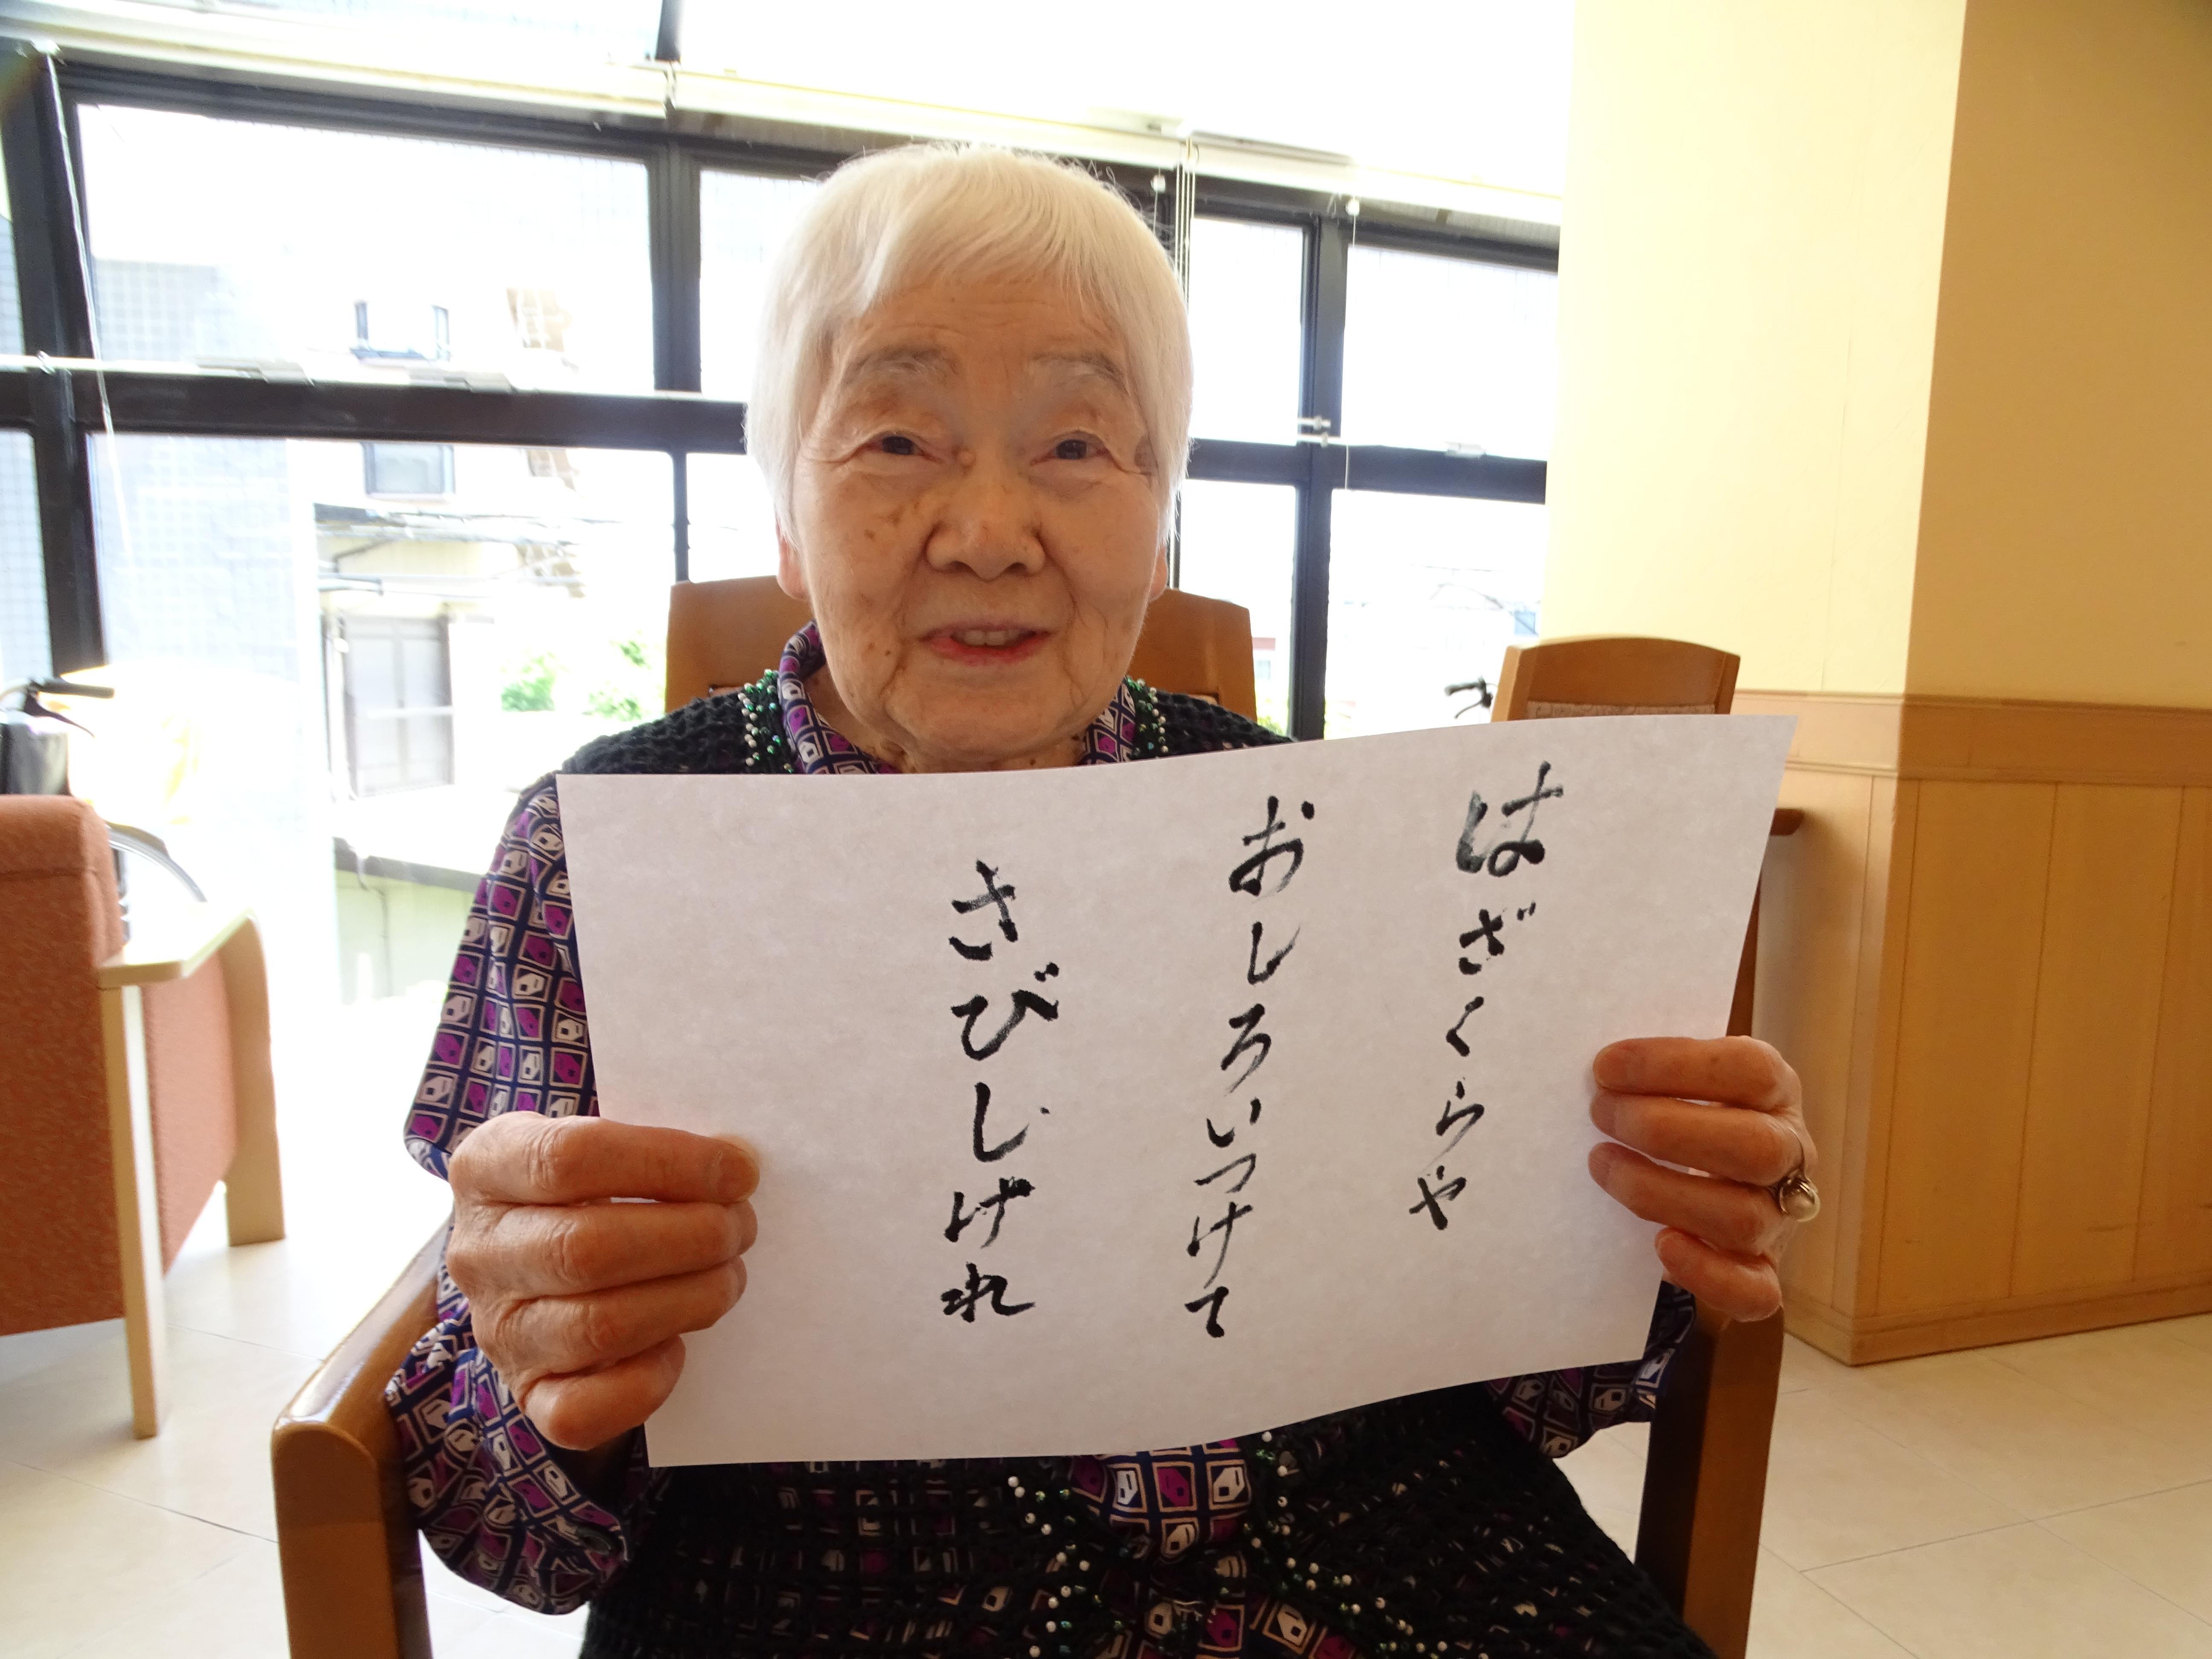 はざくらや
おしろいつけて
さびしけれ